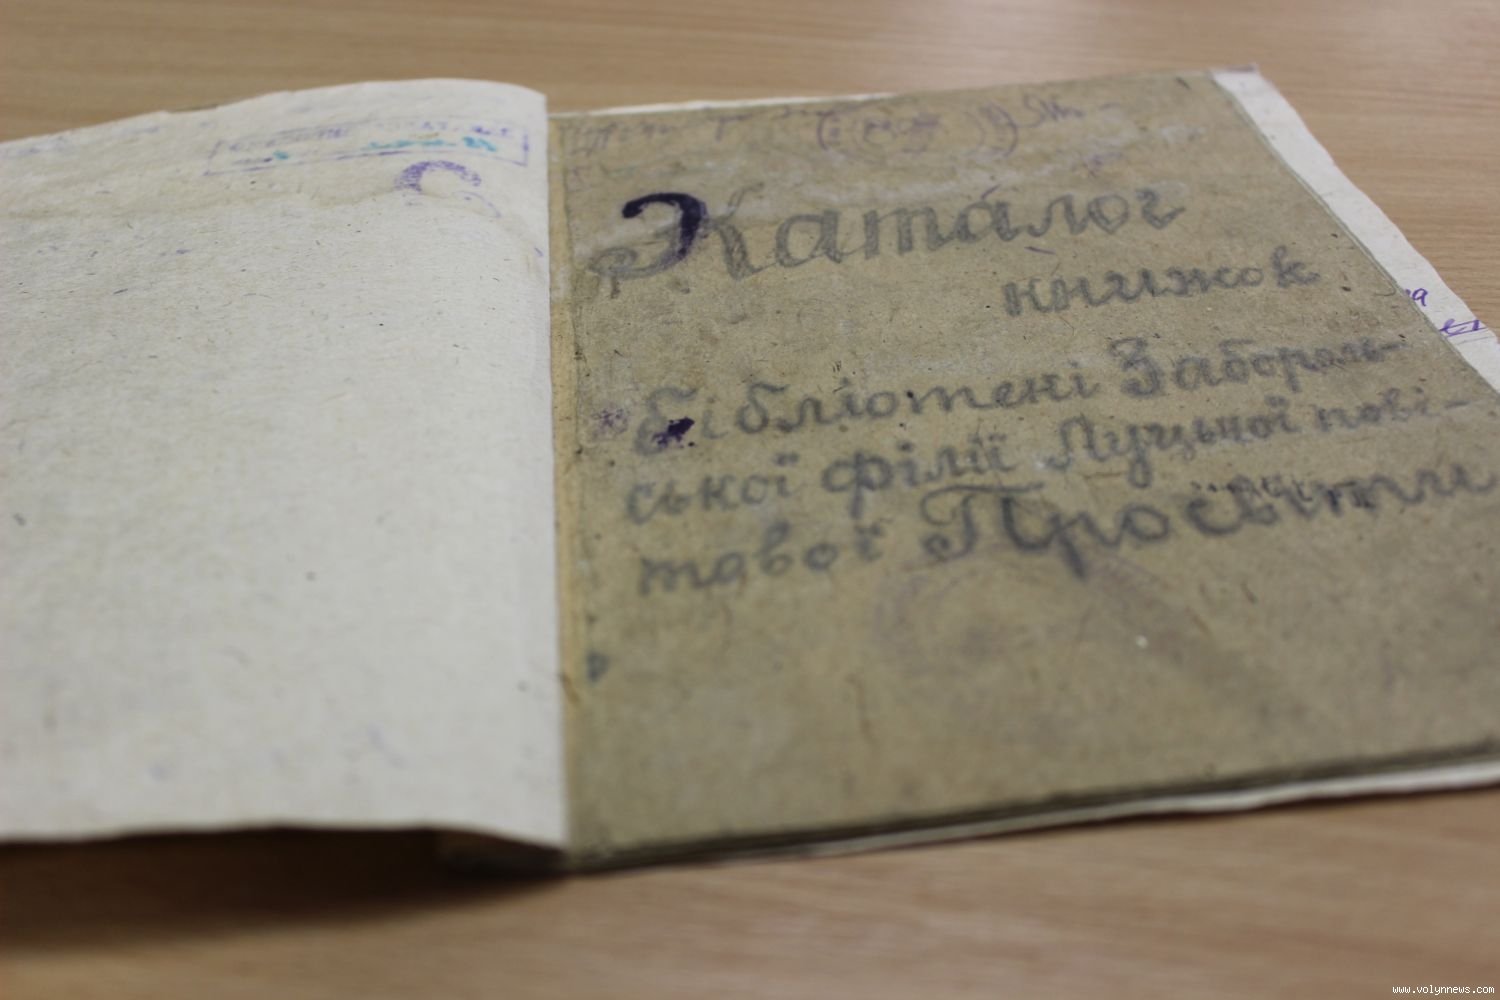 Каталог
книжок
Бібліотеки Забороль-
ської філії Луцької пові-
тової Просвіти
www.volynnews.com